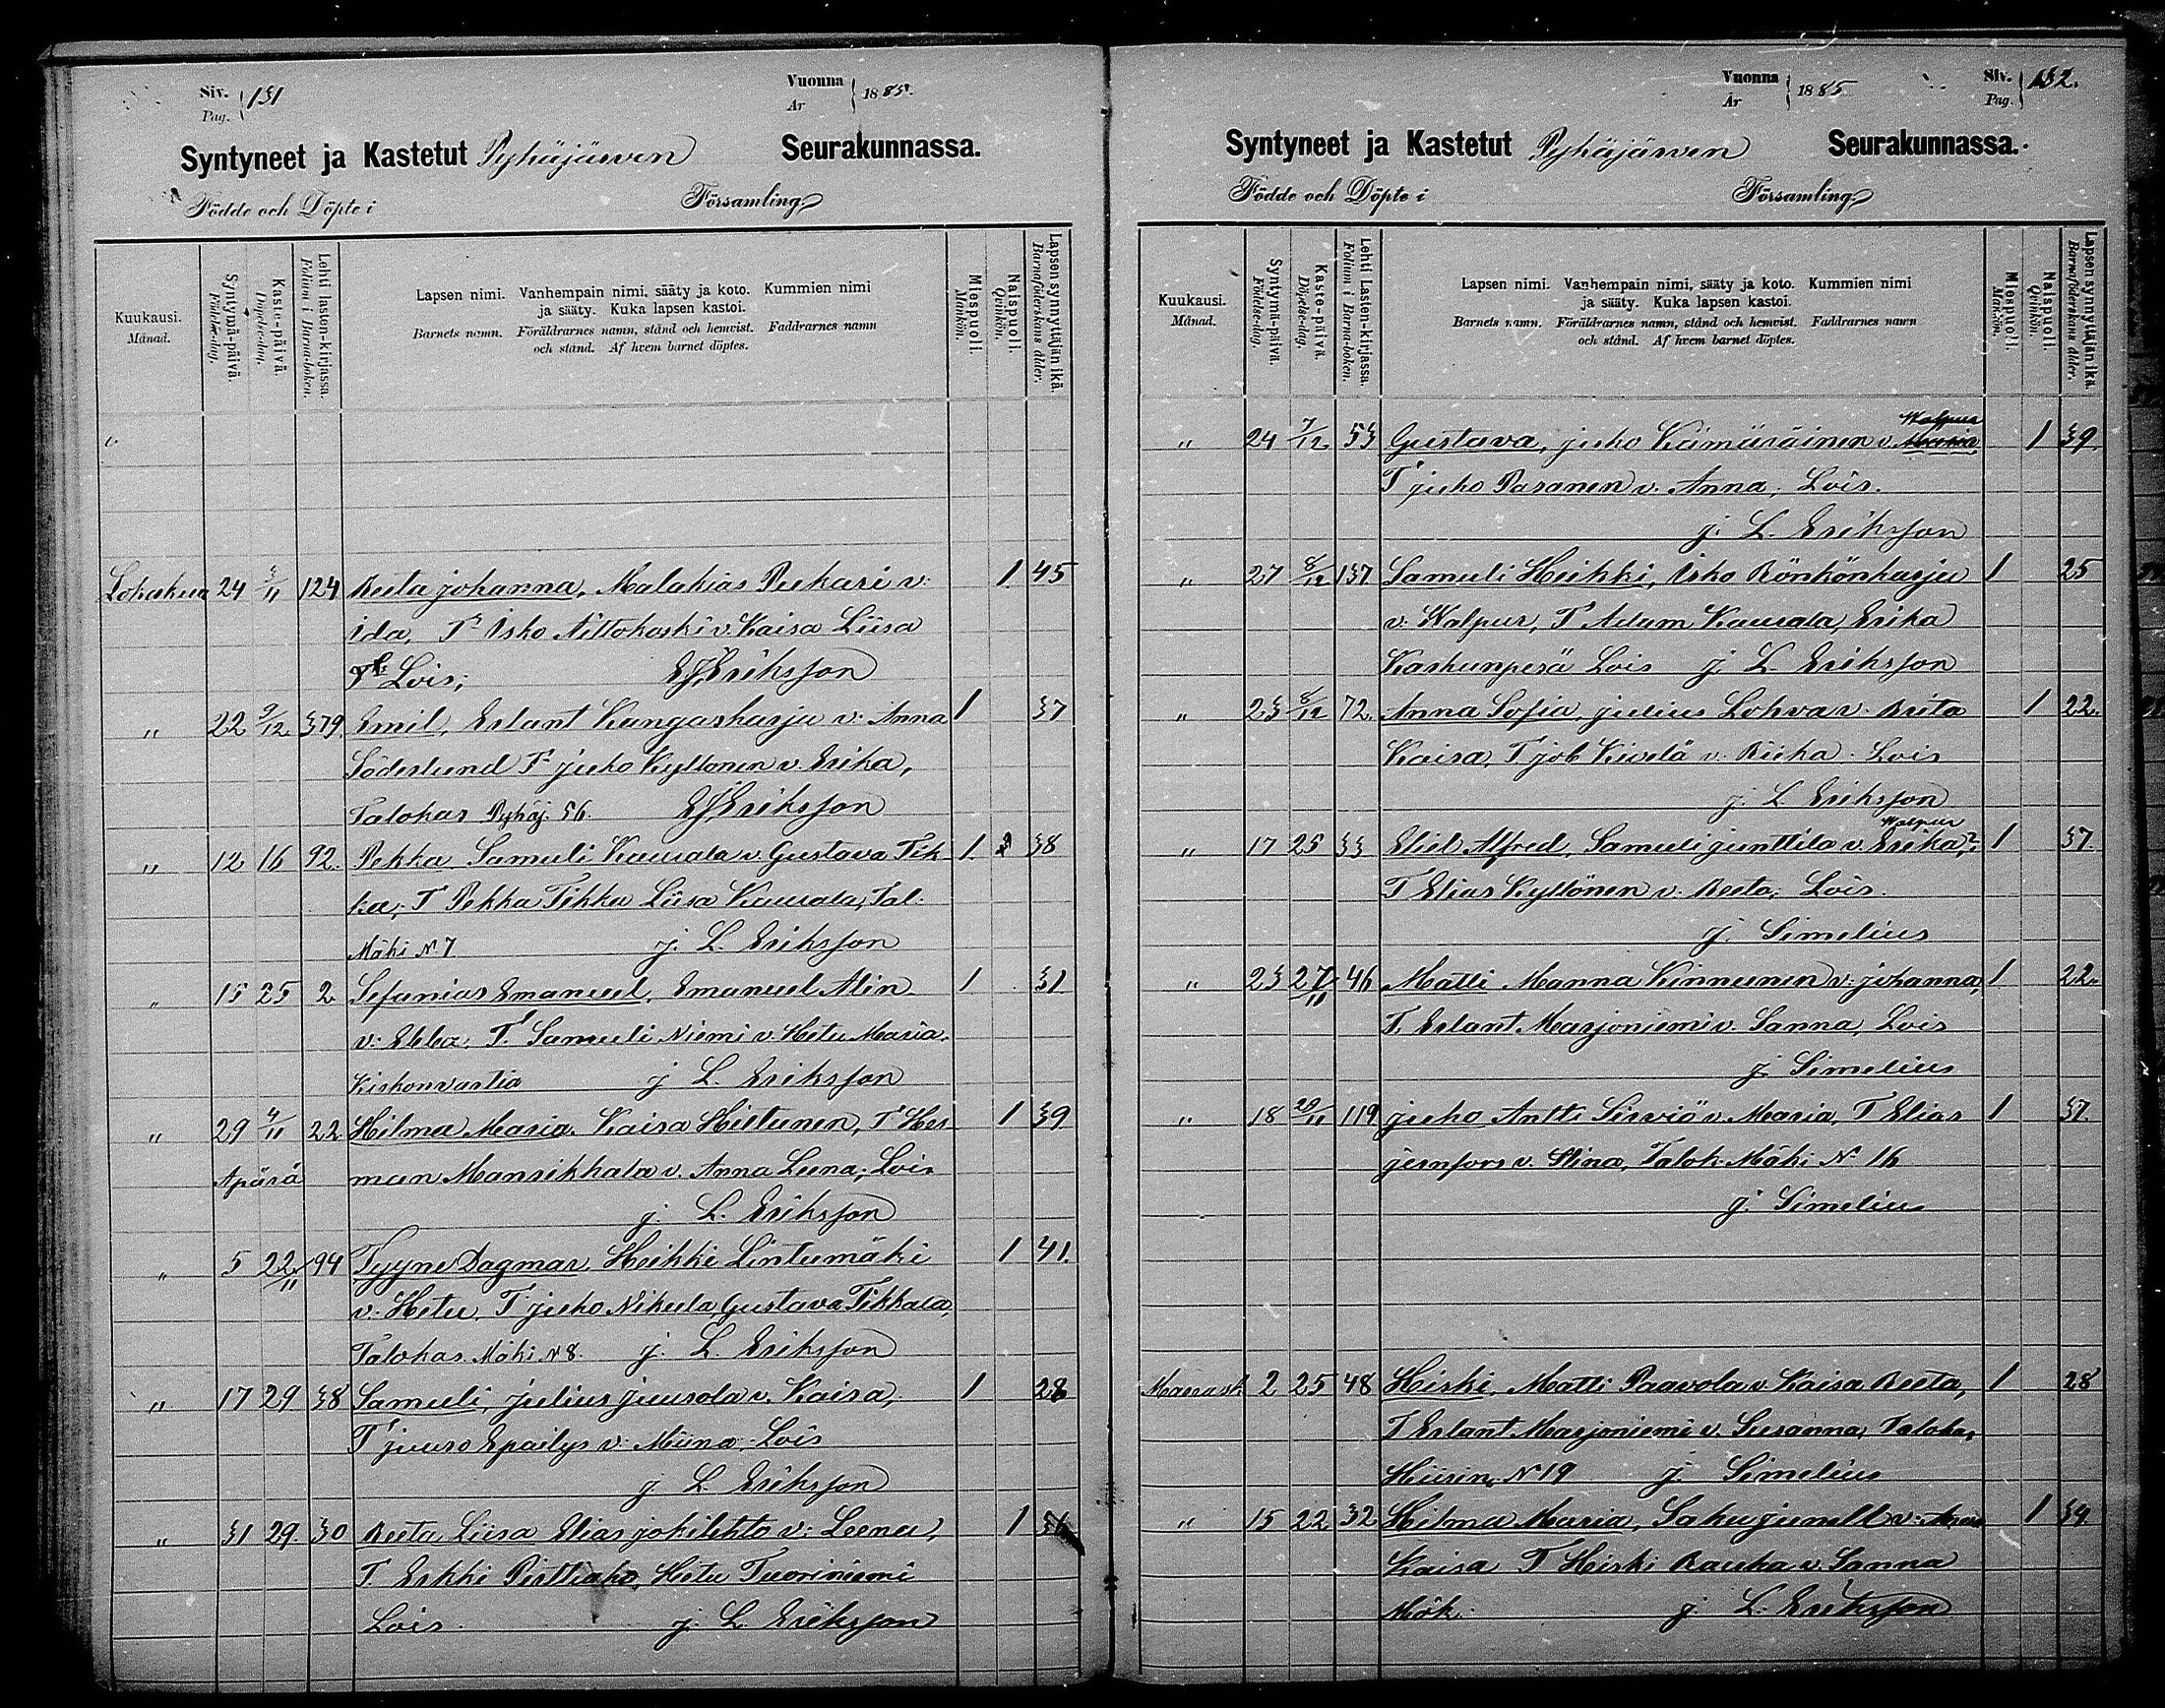 Siv. 131
Pag.
Vuonna 1885.
År
Syntyneet ja Kastetut Pyhäjärven Seurakunnassa.
Födde och Döpte i Församling
Kuukausi.
Månad.
Syntymä-päivä.
Födelse-dag.
Kaste-päivä.
Döpelse-dag.
Lehti lasten-kirjassa.
Folium i Barna-boken.
Lapsen nimi. Vanhempain nimi, sääty ja koto. Kummien nimi
ja sääty. Kuka lapsen kastoi.
Barnets namn. Föräldrarnes namn, stånd och hemvist. Faddrarnes namn
och stånd. Af hvem barnet döptes.
Miespuoli.
Mankön.
Naispuoli.
Qvinkön.
Lapsen synnyttäjän ikä.
Barnaföderskans ålder.
Lokakuu 24 3/11 124 Reeta johanna, Malakias Peckari v: 1 45
ida, T Isko Aittokoski v. Kaisa Liisa
Lois; Eriksson
" 22 9/12 379 Emil, Erlant Kangasharju v: Anna 1 37
Söderlund T juho Kyllönen v. Erika,
Talokas Pyhäj. 56. Eriksson
" 12 16 92. Pekka Samuli Kuusala v. Gustava Tik 1. 38
ka, T Pekka Tikka Liisa Kuusala, Tal.
Mäki N 7 j. L. Eriksson
" 15 25 2 Sefanias Emanuel, Emanuel Alin 1 31
v: Ebba. T. Samuli Niemi v. Hetu Maria.
Kirkonvartia j L. Eriksson
" 29 4/11 22 Hilma Maria. Kaisa Hiltunen, T Her 1 39
Äpärä man Mansikkala v. Anna Leena, Lois
j. L. Eriksson
" 5 22/11 94 Tyyne Dagmar Heikki Lintumäki 1 41.
v: Hetu. T juho Nikula, Gustava Tikkala,
Talokas. Mäki N 8. j. L. Eriksson
" 17 29 38 Samuli, julius juusola v. Kaisa, 1 28
T juuso Epailys v: Miina, Lois
j L. Eriksson
" 31 29. 30 Reeta Liisa Elias jokilehto v: Leena, 1
T. Erkki Pirttiaho, Hetu Tuoriniemi
Lois. j. L. Eriksson
Vuonna 1885
År
Siv. 132.
Pag.
Syntyneet ja Kastetut Pyhäjärwen Seurakunnassa.
Födde och Döpte i Församling
Kuukausi.
Månad.
Syntymä-päivä.
Födelse-dag.
Kaste-päivä.
Döpelse-dag.
Lehti Lasten-kirjassa.
Folium i Barna-boken.
Lapsen nimi. Vanhempain nimi, sääty ja koto. Kummien nimi
ja sääty. Kuka lapsen kastoi.
Barnets namn. Föräldrarnes namn, stånd och hemvist. Faddrarnes namn
och stånd. Af hvem barnet döptes.
Miespuoli.
Mankön.
Naispuoli.
Qvinkön.
Lapsen synnyttäjän ikä.
Barnaföderskans ålder.
Walpur
" 24 7/12 53 Gustava, juho Kämäräinen v. Maria 1 39
T juho Pasanen v. Anna, Lois.
j. L. Eriksson
" 27 8/12 137 Samuli Heikki, Isko Rönkönharju 1 25
v: Walpur, T Adam Kuusala, Erika
Karhunperä Lois j. L. Eriksson
" 23 8/12 72. Anna Sofia, julius Lohva v. Brita 1 22.
Kaisa, T job Kivelä v. Riika. Lois
j. L. Eriksson
Walpur
" 17 25 33 Eliel Alfred, Samuli junttila v. Erika, 1 37.
T Elias Kyllönen v. Reeta, Lois.
j. Simelius
" 23 27/11 46 Matti Manna Kinnunen v: johanna, 1 22.
T. Erlant Marjoniemi v. Sanna, Lois
j. Simelius
" 18 29/11 119 juho Antti Sirviö v. Maria, T Elias 1 37
jernfors v. Stina, Talok. Mäki N 16
j. Simelius
Marrask. 2 25 48 Hiski, Matti Paavola v. Kaisa Reeta, 1 28
T Erlant Marjoniemi v. Susanna, Talokas
Hiisin. N 19 j. Simelius
" 15 22 32 Hilma Maria, Saku junell v: 1 39
Kaisa T Hiski Rauka v. Sanna
Mök. j. L. Eriksson